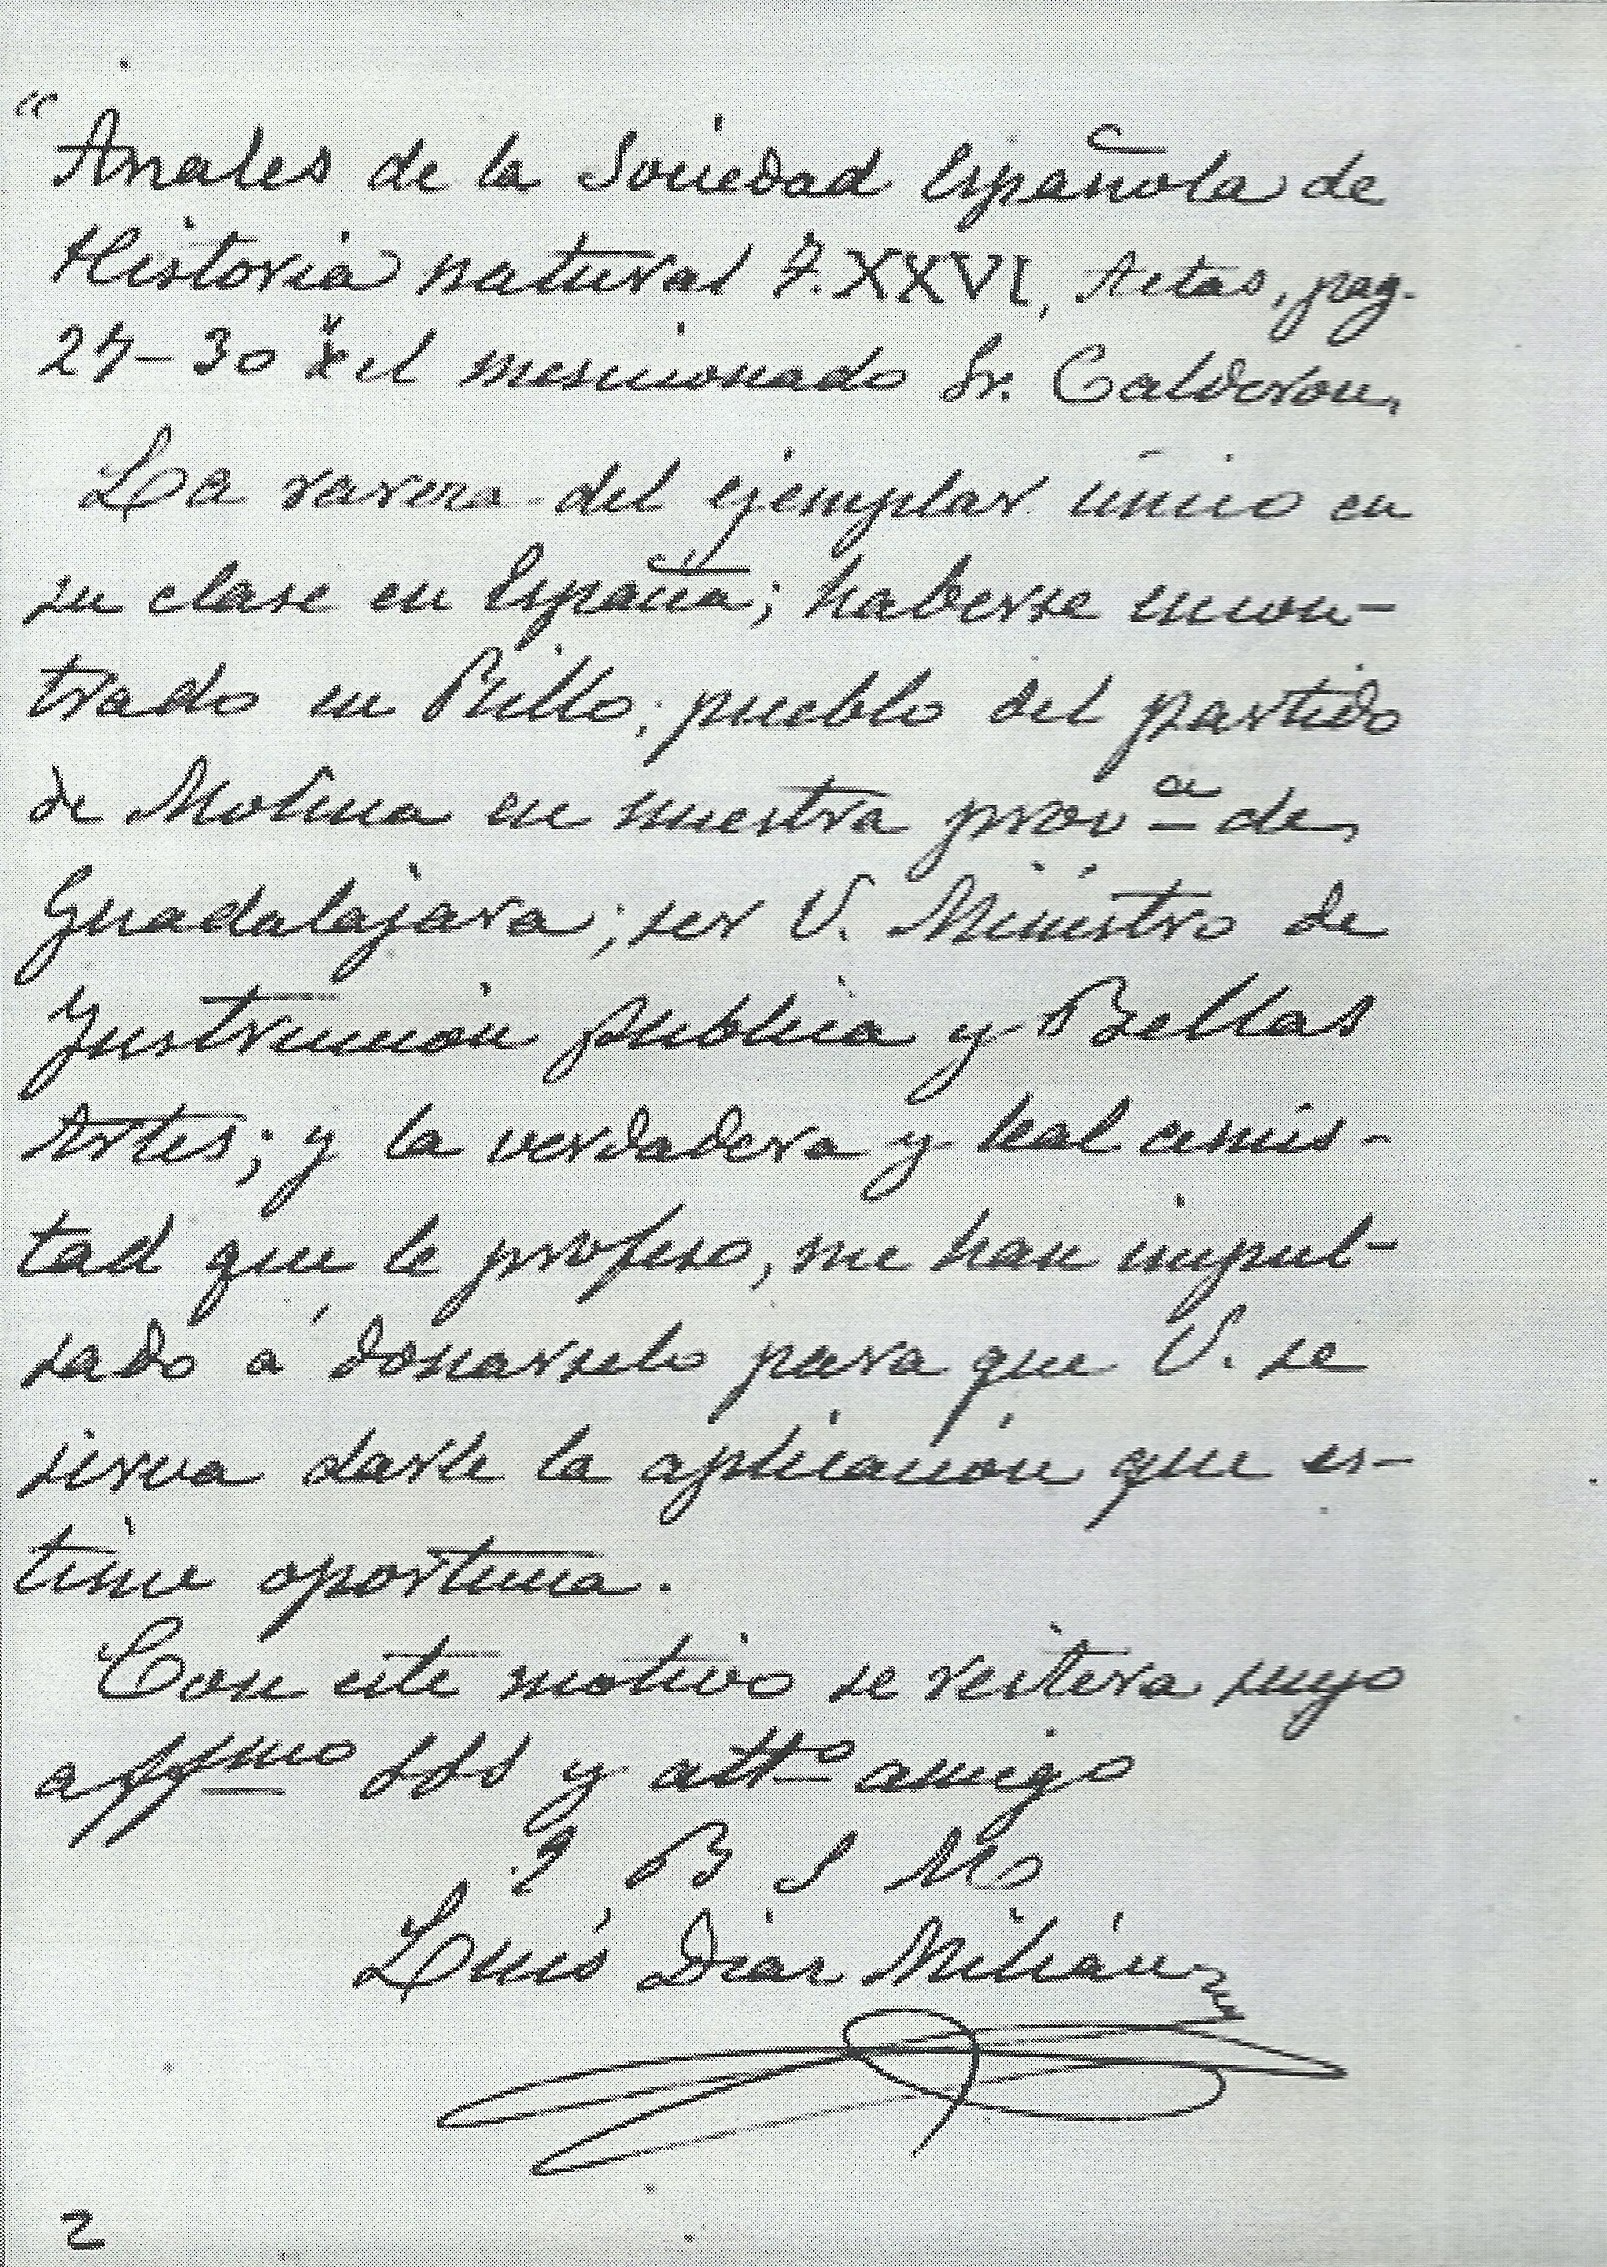 "Anales de la Sociedad Española de
Historia natural T. XXVI, Actas, pag.
27-30 " el mencionado Sr. Calderon.
La rareza del ejemplar único en
su clase en España; haberse encon-
trado en Rillo, pueblo del partido
de Molina en nuestra prov.ª de
Guadalajara; ser V. Ministro de
Ynstrucción publica y Bellas
Artes; y la verdadera y leal amis-
tad que le profeso, me han impul-
sado á donarselo para que V. se
sirva darle la aplicación que es-
time oportuna.
Con este motivo se reitera suyo
affmo SSS y attº amigo
Q B S M
Luis Diaz Milián
2